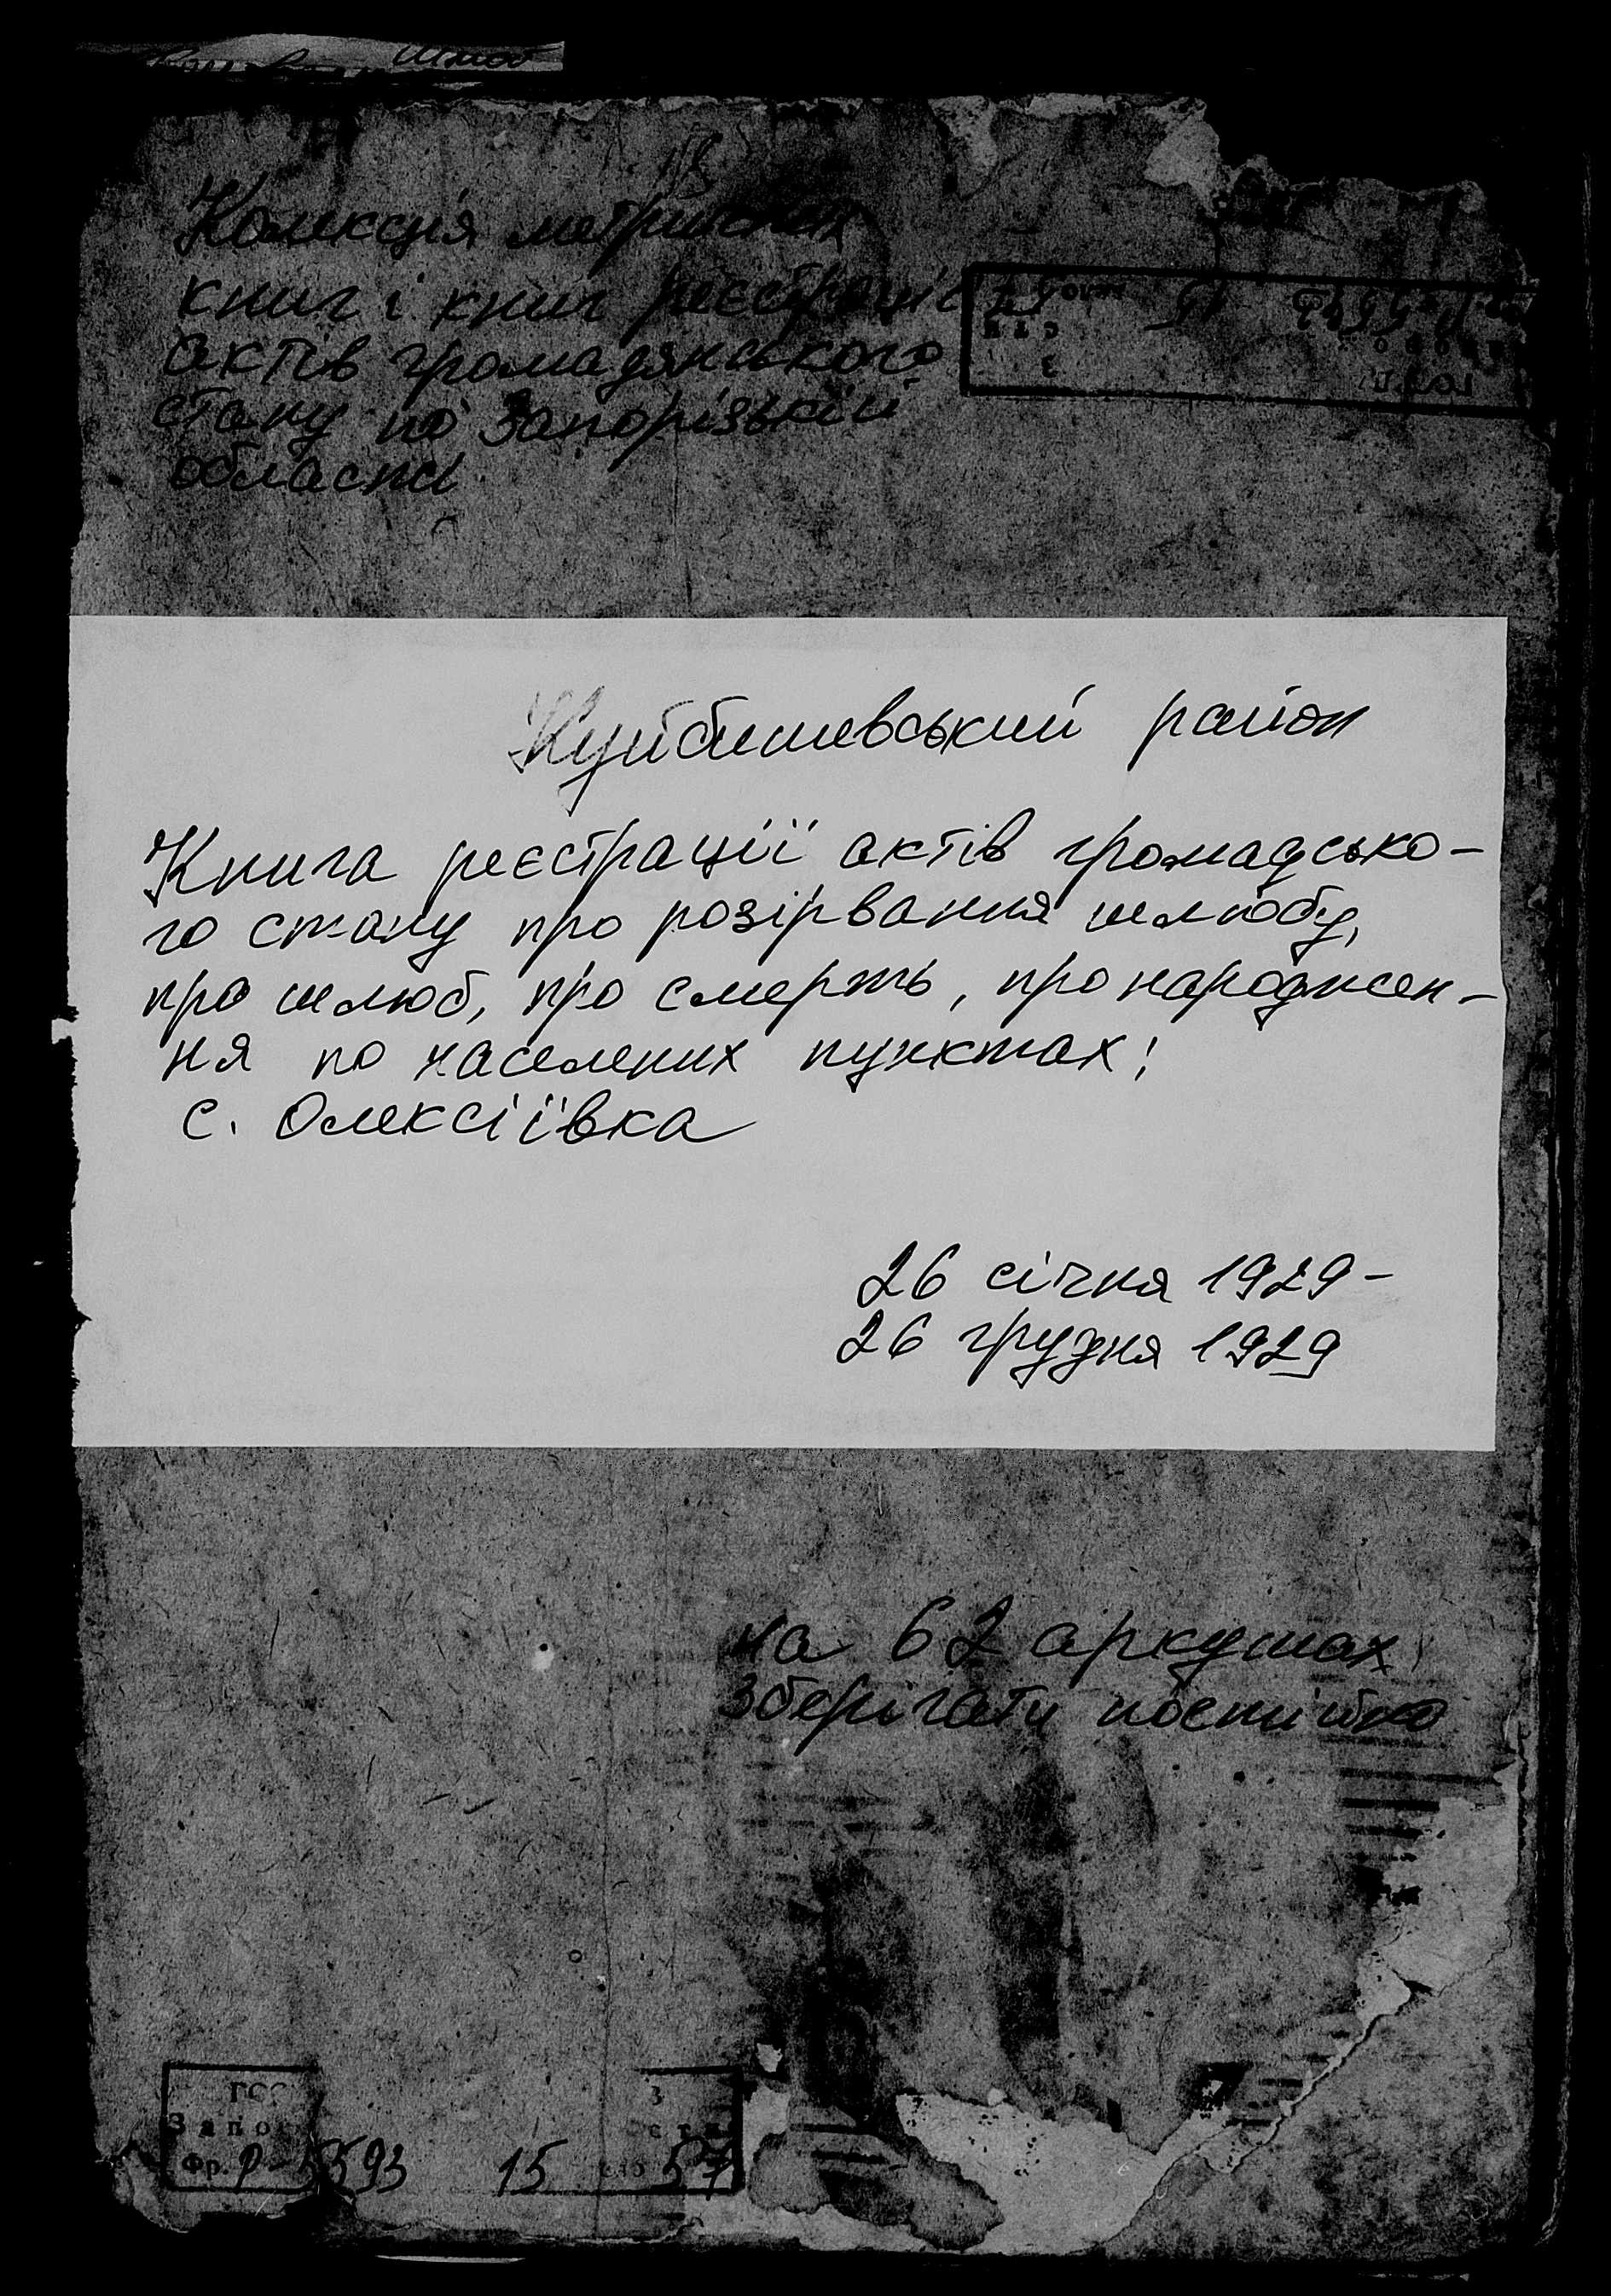 Колекція метричних
книг і книг реєстрації
актів громадянського
стану по Запорізькій
області
Куйбишевський район
Книга реєстрації актів громадсько-
го стану про розірвання шлюбу,
про шлюб, про смерть, про народжен-
ня по населених пунктах:
с. Олексіївка
26 січня 1929-
26 грудня 1929
на 62 аркушах
Зберігати постійно
Фр. Р-5593 15 57